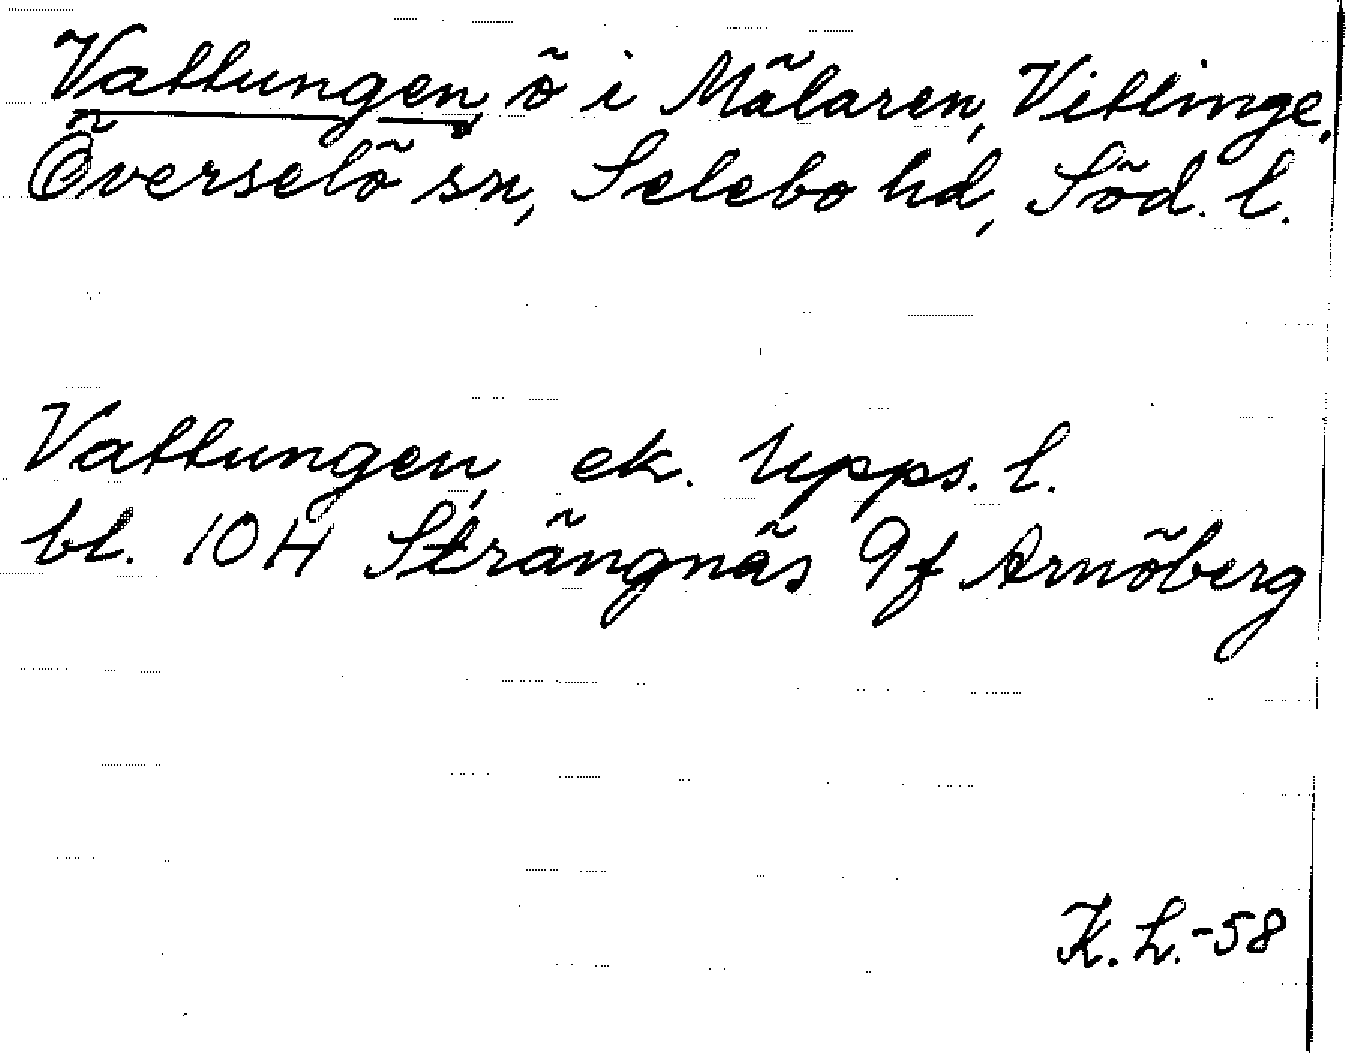 Vattungen, ö i Mälaren, Vittinge,
Överselö sn, Selebo hd, Söd. l.
Vattungen, ek. Upps. l.
bl. 10H Strängnäs 9f Arnöberg
K. L. -58